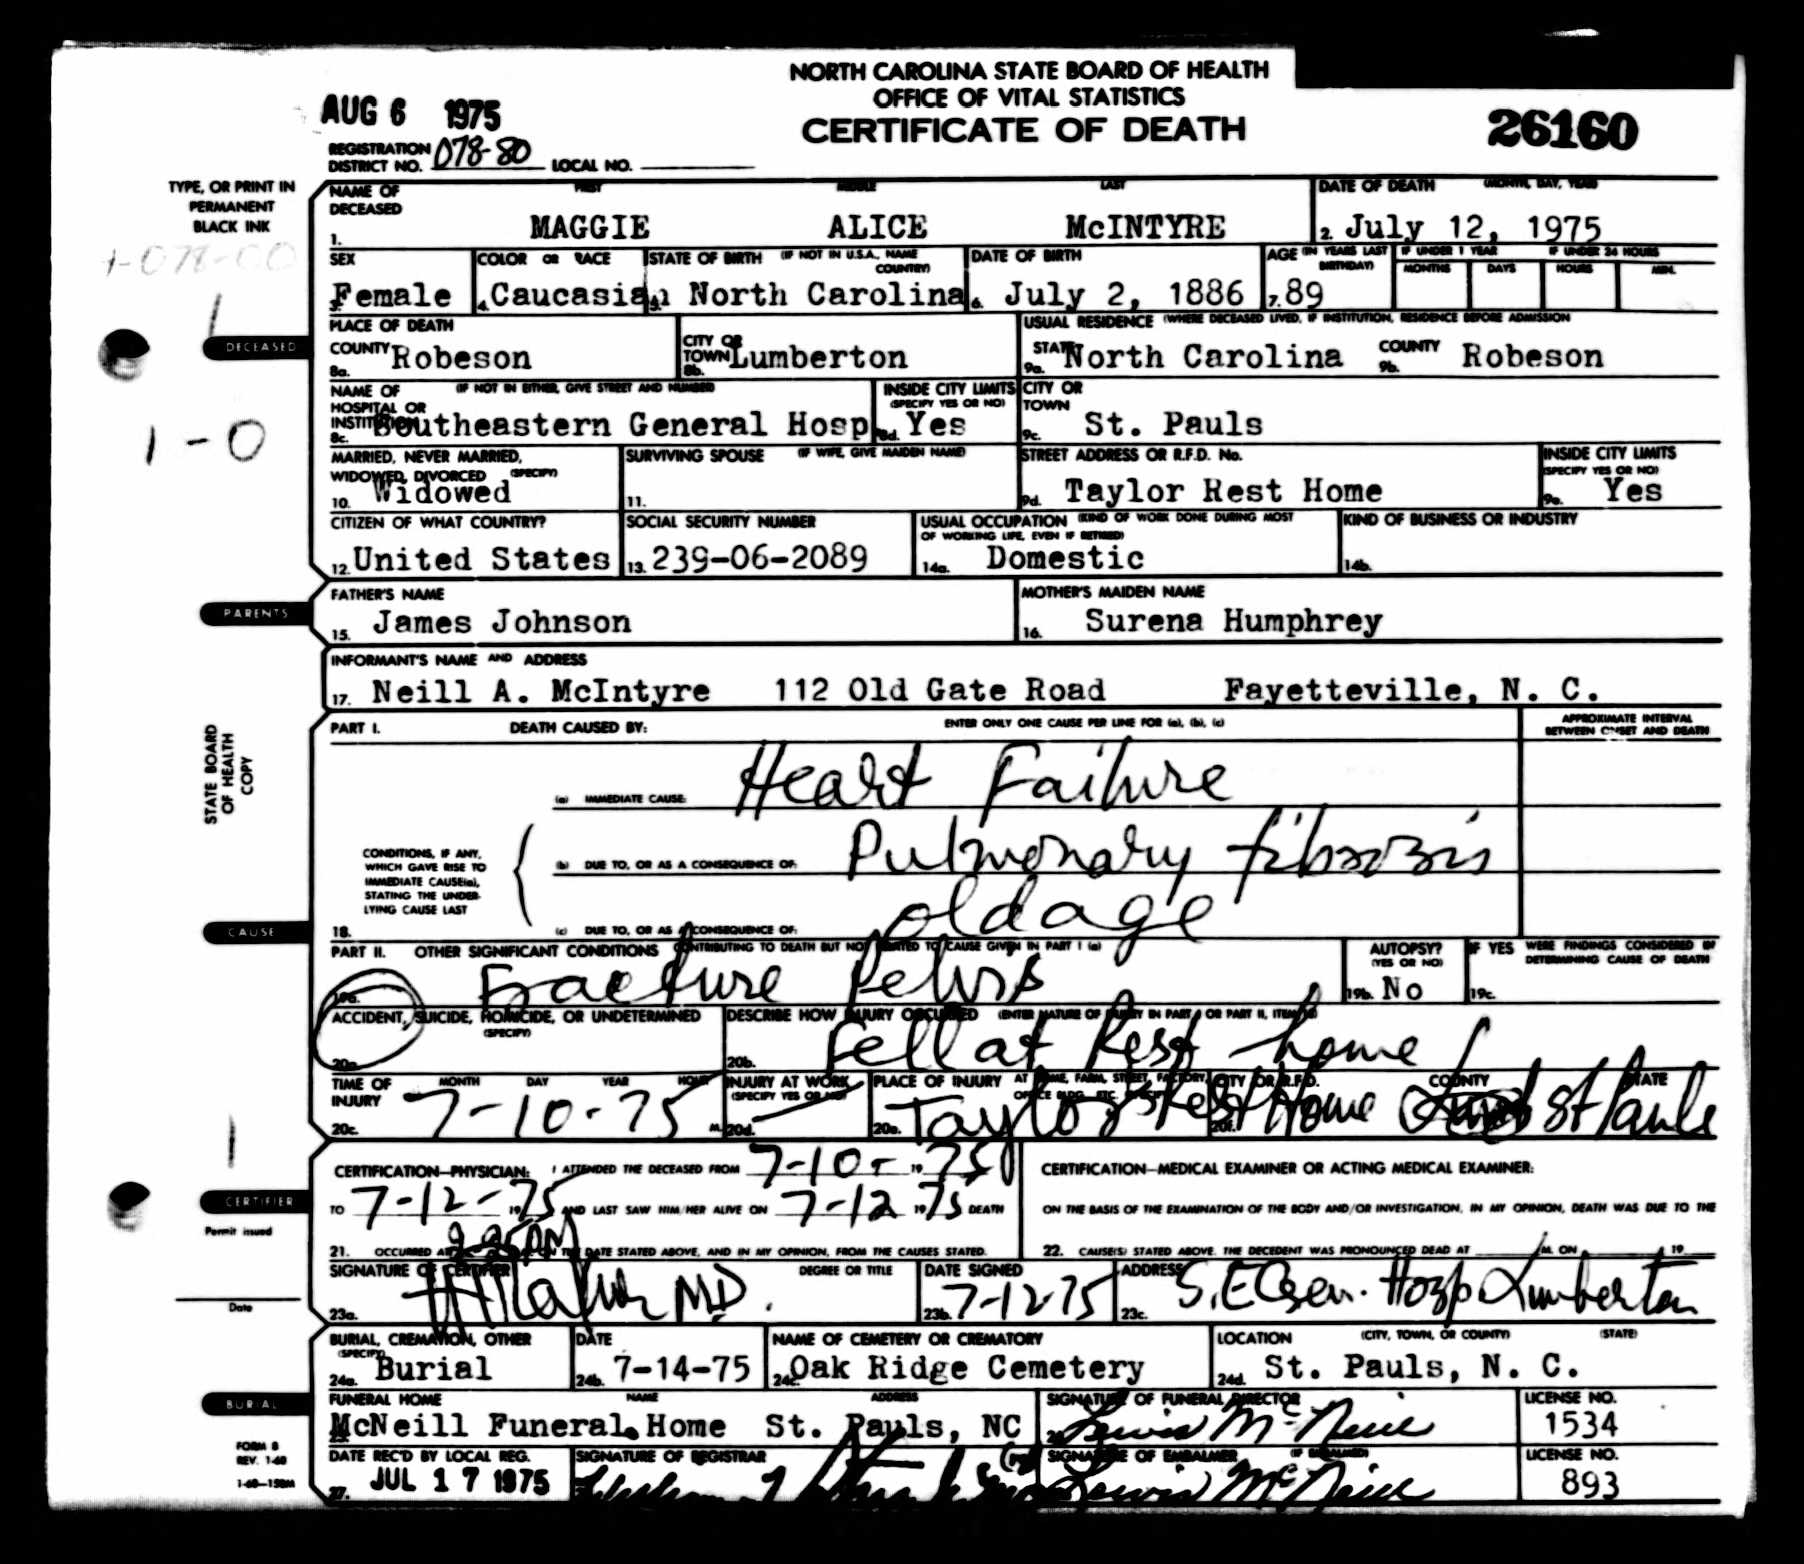 NORTH CAROLINA STATE BOARD OF HEALTH
OFFICE OF VITAL STATISTICS
CERTIFICATE OF DEATH
AUG 6 1975
26160
REGISTRATION DISTRICT NO. 078-80 LOCAL NO.
TYPE, OR PRINT IN
PERMANENT
BLACK INK
1-078-00
1-0
NAME OF DECEASED FIRST MIDDLE LAST DATE OF DEATH (MONTH, DAY, YEAR)
1. MAGGIE ALICE McINTYRE 2. July 12, 1975
SEX COLOR OR RACE STATE OF BIRTH (IF NOT IN U.S.A., NAME COUNTRY) DATE OF BIRTH AGE (IN YEARS LAST BIRTHDAY) IF UNDER 1 YEAR IF UNDER 24 HOURS
MONTHS DAYS HOURS MIN.
3. Female 4. Caucasian 5. North Carolina 6. July 2, 1886 7. 89
DECEASED
PLACE OF DEATH USUAL RESIDENCE (WHERE DECEASED LIVED, IF INSTITUTION, RESIDENCE BEFORE ADMISSION
COUNTY 8a. Robeson CITY OR TOWN 8b. Lumberton STATE 9a. North Carolina COUNTY 9b. Robeson
NAME OF HOSPITAL OR INSTITUTION (IF NOT IN EITHER, GIVE STREET AND NUMBER) INSIDE CITY LIMITS (SPECIFY YES OR NO) CITY OR TOWN
8c. Southeastern General Hosp 8d. Yes 9c. St. Pauls
MARRIED, NEVER MARRIED, WIDOWED, DIVORCED (SPECIFY) SURVIVING SPOUSE (IF WIFE, GIVE MAIDEN NAME) STREET ADDRESS OR R.F.D. No. INSIDE CITY LIMITS (SPECIFY YES OR NO)
10. Widowed 11. 9d. Taylor Rest Home 9e. Yes
CITIZEN OF WHAT COUNTRY? SOCIAL SECURITY NUMBER USUAL OCCUPATION (KIND OF WORK DONE DURING MOST OF WORKING LIFE, EVEN IF RETIRED) KIND OF BUSINESS OR INDUSTRY
12. United States 13. 239-06-2089 14a. Domestic 14b.
PARENTS
FATHER'S NAME MOTHER'S MAIDEN NAME
15. James Johnson 16. Surena Humphrey
INFORMANT'S NAME AND ADDRESS
17. Neill A. McIntyre 112 Old Gate Road Fayetteville, N. C.
STATE BOARD
OF HEALTH
COPY
PART I. DEATH CAUSED BY: ENTER ONLY ONE CAUSE PER LINE FOR (a), (b), (c) APPROXIMATE INTERVAL BETWEEN ONSET AND DEATH
(a) IMMEDIATE CAUSE: Heart Failure
CONDITIONS, IF ANY,
WHICH GAVE RISE TO
IMMEDIATE CAUSE(a),
STATING THE UNDER-
LYING CAUSE LAST
(b) DUE TO, OR AS A CONSEQUENCE OF: Pulmonary fibrosis
CAUSE
18. (c) DUE TO, OR AS A CONSEQUENCE OF: old age
PART II. OTHER SIGNIFICANT CONDITIONS CONTRIBUTING TO DEATH BUT NOT RELATED TO CAUSE GIVEN IN PART I (a) AUTOPSY? (YES OR NO) IF YES WERE FINDINGS CONSIDERED IN DETERMINING CAUSE OF DEATH
19a. Fracture Pelvis 19b. No 19c.
ACCIDENT, SUICIDE, HOMICIDE, OR UNDETERMINED (SPECIFY) DESCRIBE HOW INJURY OCCURRED (ENTER NATURE OF INJURY IN PART I OR PART II, ITEM 18)
20a. 20b. Fell at Rest home
TIME OF INJURY MONTH DAY YEAR HOUR INJURY AT WORK (SPECIFY YES OR NO) PLACE OF INJURY AT HOME, FARM, STREET, FACTORY, OFFICE BLDG., ETC. (SPECIFY) CITY OR R.F.D. COUNTY STATE
20c. 7-10-75 M. 20d. 20e. Taylor Rest Home 20f. St Pauls
CERTIFICATION—PHYSICIAN: I ATTENDED THE DECEASED FROM 7-10- 19 75 CERTIFICATION—MEDICAL EXAMINER OR ACTING MEDICAL EXAMINER:
CERTIFIER
TO 7-12- 19 75 AND LAST SAW HIM/HER ALIVE ON 7-12 19 75 DEATH ON THE BASIS OF THE EXAMINATION OF THE BODY AND/OR INVESTIGATION, IN MY OPINION, DEATH WAS DUE TO THE
Permit issued
21. OCCURRED AT PM ON THE DATE STATED ABOVE, AND IN MY OPINION, FROM THE CAUSES STATED. 22. CAUSE(S) STATED ABOVE. THE DECEDENT WAS PRONOUNCED DEAD AT M. ON 19
SIGNATURE OF CERTIFIER DEGREE OR TITLE DATE SIGNED ADDRESS
23a. M.D. 23b. 7-12-75 23c. S.E Gen. Hosp Lumberton
Date
BURIAL, CREMATION, OTHER (SPECIFY) DATE NAME OF CEMETERY OR CREMATORY LOCATION (CITY, TOWN, OR COUNTY) (STATE)
24a. Burial 24b. 7-14-75 24c. Oak Ridge Cemetery 24d. St. Pauls, N. C.
BURIAL
FUNERAL HOME NAME ADDRESS SIGNATURE OF FUNERAL DIRECTOR LICENSE NO.
McNeill Funeral Home St. Pauls, NC Lewis McNeill 1534
FORM 8
REV. 1-68
1-68-150M
DATE REC'D BY LOCAL REG. SIGNATURE OF REGISTRAR SIGNATURE OF EMBALMER (IF EMBALMED) LICENSE NO.
27. JUL 17 1975 Lewis McNeill 893